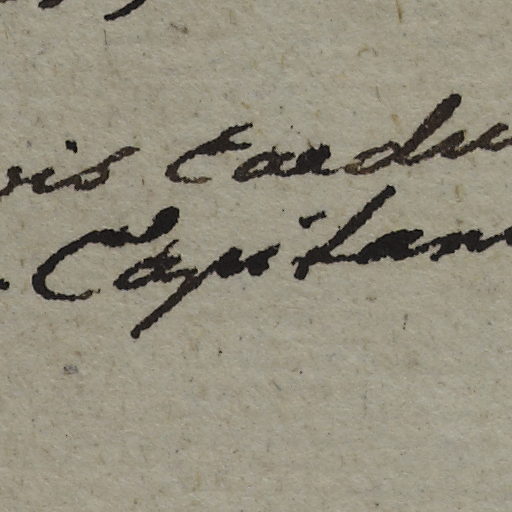 vis Cardu
Capitan